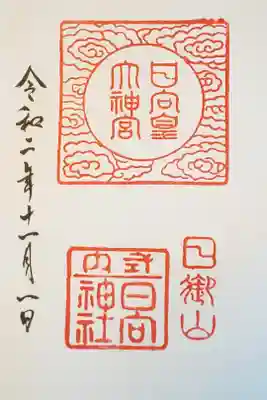 日向皇
大神宮
日御山
式内
日向
神社
令和二年十一月八日